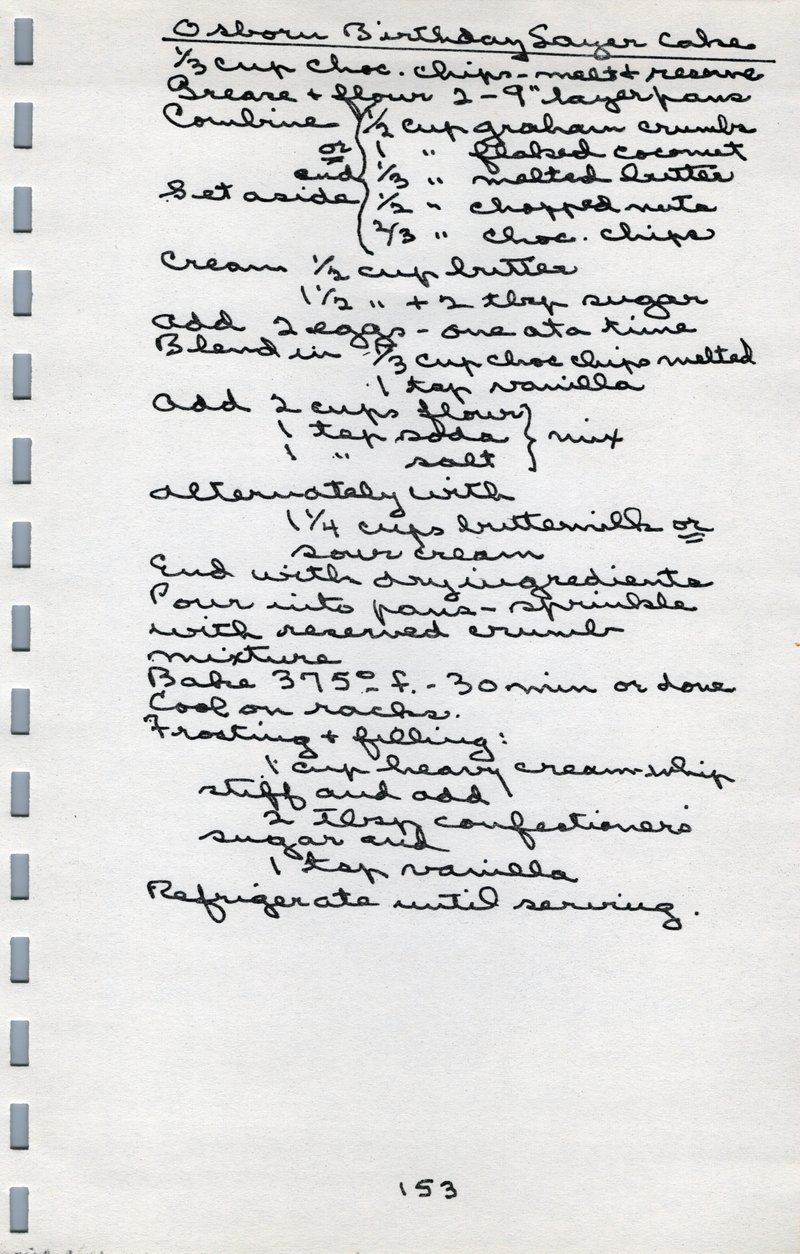 Osborn Birthday Layer Cake
1/3 cup choc. chips - melt & reserve
Grease + flour 2 - 9" layer pans
Combine 1/2 cup graham crumbs
or 1 " flaked coconut
and 1/3 " melted butter
Set aside 1/2 " chopped nuts
2/3 " choc. chips
Cream 1/2 cup butter
1 1/2 " + 2 tbsp sugar
Add 2 eggs - one at a time
Blend in 1/3 cup choc chips melted
1 tsp vanilla
Add 2 cups flour
1 tsp soda } mix
1 " salt
alternately with
1 1/4 cups buttermilk or
sour cream
End with dry ingredients
Pour into pans - sprinkle
with reserved crumb
mixture
Bake 375° f. - 30 min or done
Cool on racks.
Frosting + filling:
1 cup heavy cream - whip
stiff and add
2 Tbsp confectioners'
sugar and
1 tsp vanilla
Refrigerate until serving.
153